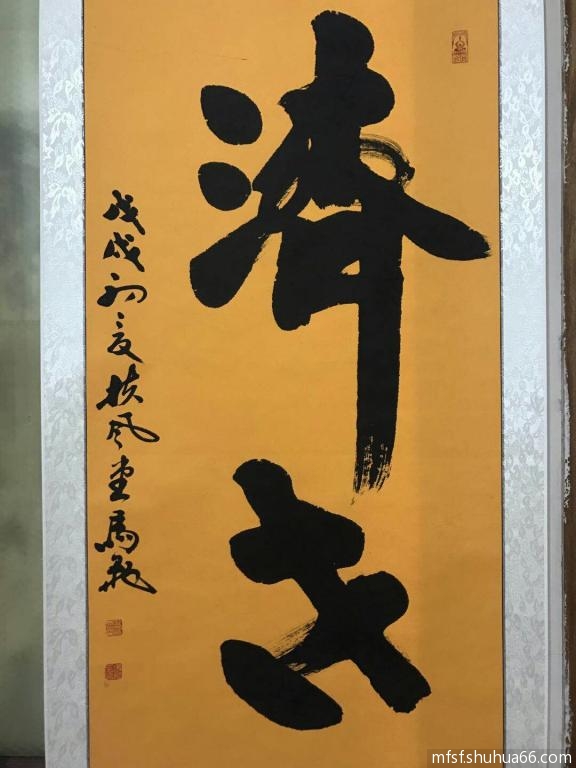 济世
戊戌初夏扶风堂馬
mfsf.shuhua66.com